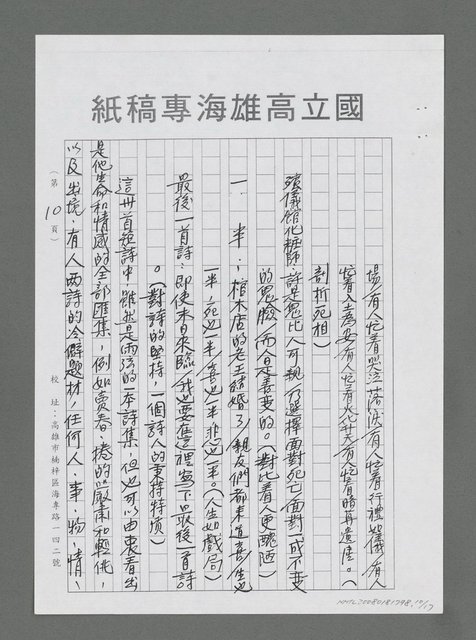 國立高雄海專稿紙
場/有人忙着哭泣落淚/有人忙着行禮如儀/有人
忙着入土為安/有人忙有火升天/有人忙着暗爭遺產。(
剖析死相)
殯儀館化粧師:許是鬼比人可親/乃選擇面對死亡/面對一成不變
的鬼臉/而人是善變的。(對比着人更醜陋)
一 半:棺木店的老王結婚了/親友們都來道喜/生也
一半/死也一半/喜也一半/悲也一半。(人生如戲局)
最後一首詩:即使末日來臨/我也要在這裡寫下最後一首詩
。(對詩的堅持,一個詩人的
這卅首短詩中,雖然是雨弦的一本詩集,但也可以由衷看出
是他生命和情感的全部匯集,例如賣春、捲的嚴肅和輕佻,
以及出境、有人兩詩的冷僻題材,任何人、事、物、情、
(第10頁)
校址:高雄市楠梓區海專路一四二號
NMTL20080181798, 10/17